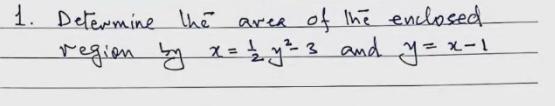 1. Determine the area of the enclosed
region by x = ½ y² - 3 and y = x - 1